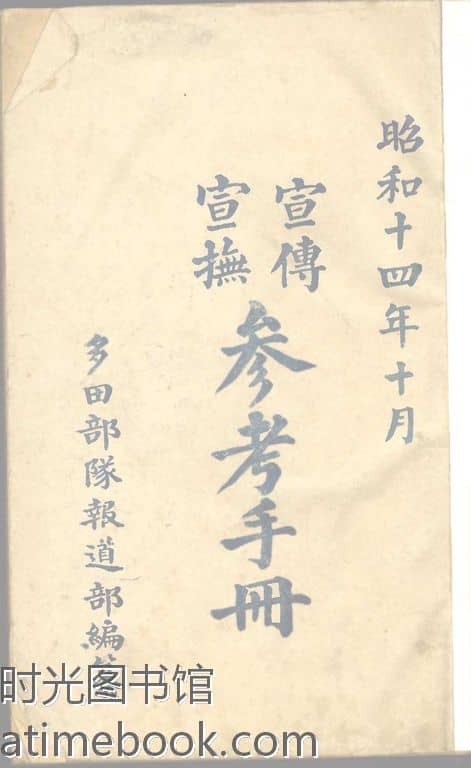 昭和十四年十月
宣傳
宣撫
参考手冊
多田部隊報道部編
时光图书馆
atimebook.com